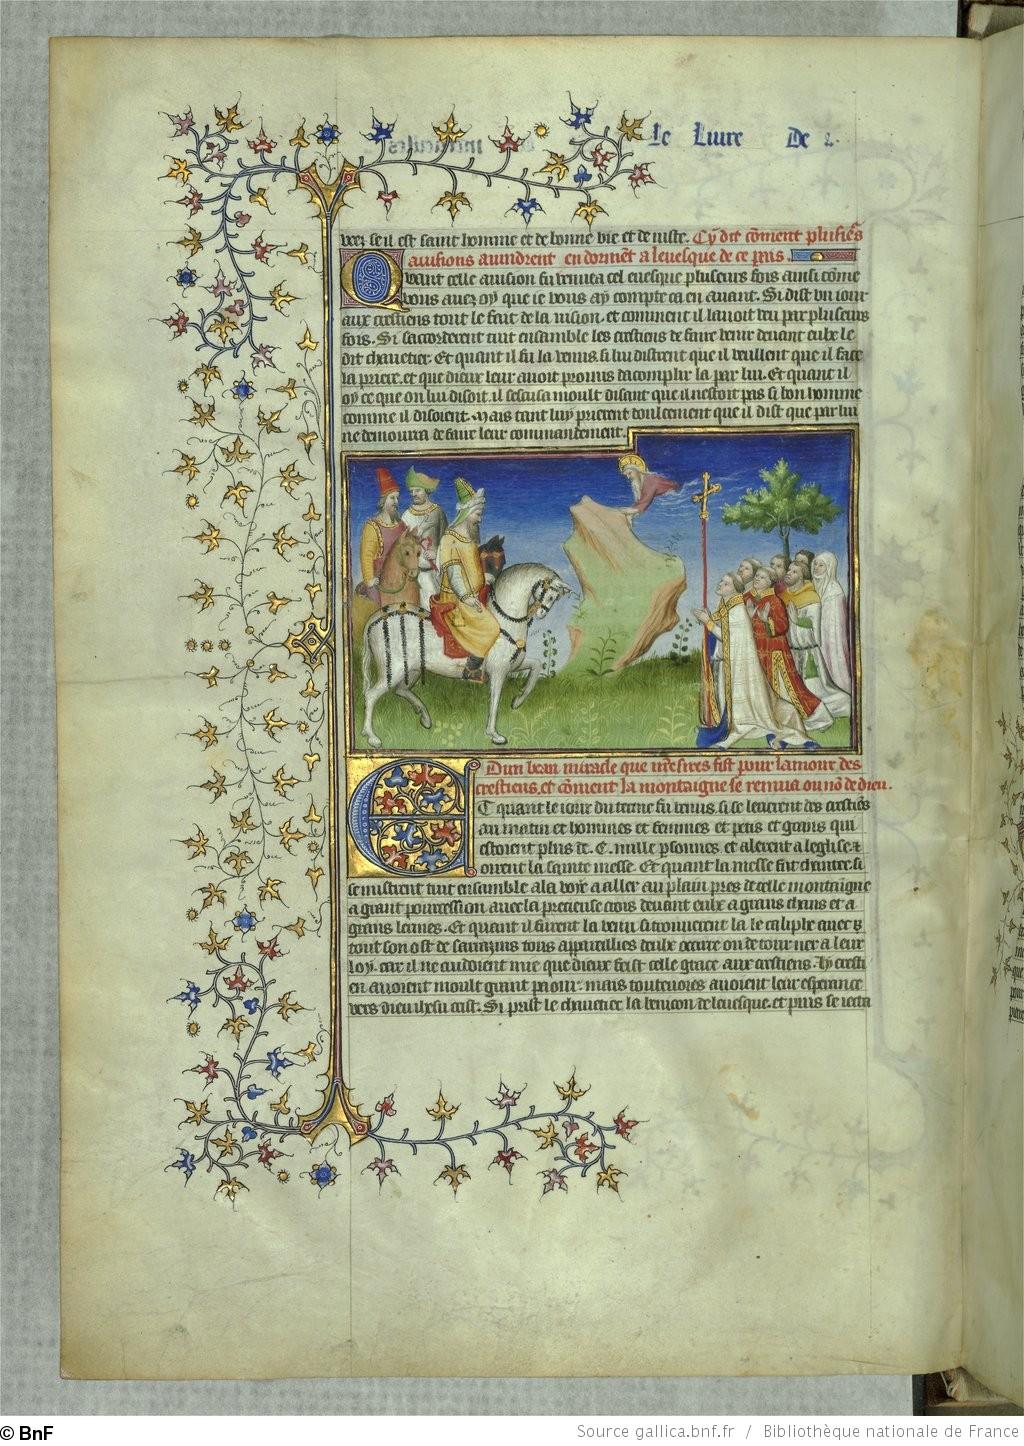 Le Liure De
uerz se il est saint homme et de bonne vie et de iuste. Cy dit cōment plusieˢ
auisions auindrent en dormēt a leuesque de ce pais.
Quant celle auision fu venue a cel euesque plusieurs fois ainsi cōme
vous auez oy que ie vous ay compte ca en auant. Si dist vn iour
aux crestiens tout le fait de la uision. et comment il lauoit veu par plusieurs
fois. Si sacorderent tuit ensamble les crestiens de faire venir deuant eulx le
dit chauetier. Et quant il fu la venus. si lui distrent que il veullent que il face
la priere. et que dieux leur auoit promis dacomplir la par lui. Et quant il
oy ce que on lui disoit. il sescusa moult disant que il nestoit pas si bon homme
comme il disoient. Mais tant luy prierent doulcement que il dist que par lui
ne demoura de faire leur commandement.
Dun beau miracle que nr̄e sires fist pour lamour des
crestiens. et cōment la montaigne se remua ou nō de dieu.
Et quant le iour du terme fu venus. si se leuerent des crestiēs
au matin et hommes et femmes et petis et grans qui
estoient plus de .C. mille psonnes. et alerent a leglise. et
oirent la sainte messe. Et quant la messe fut chantee. si
se mistrent tuit ensamble a la voye a aller au plain pres de celle montaigne
a grant pourcession auec la precieuse crois deuant eulx a grans chans et a
grans lermes. Et quant il furent la venu. si trouuerent la le caliphe auecqs
tout son ost de sarrazins tous appareillies deulx occire ou de tourner a leur
loy. car il ne cuidoient mie que dieux feist celle grace aux crestiens. Ly cresti
en auoient moult grant paour. mais touteuoies auoient leur esperance
vers dieu ihesu crist. Si prist le chauetier la beneicon de leuesque. et puis se ieta
© BnF
Source gallica.bnf.fr / Bibliothèque nationale de France